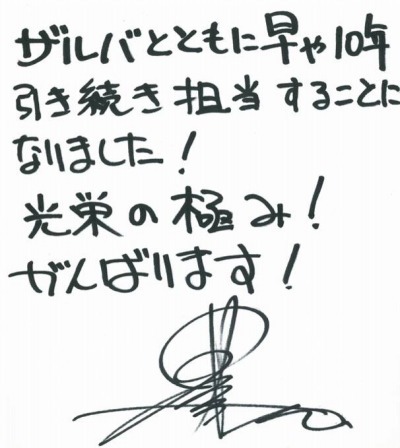 ザルバとともに早や10年
引き続き担当することに
なりました!
光栄の極み!
がんばります!